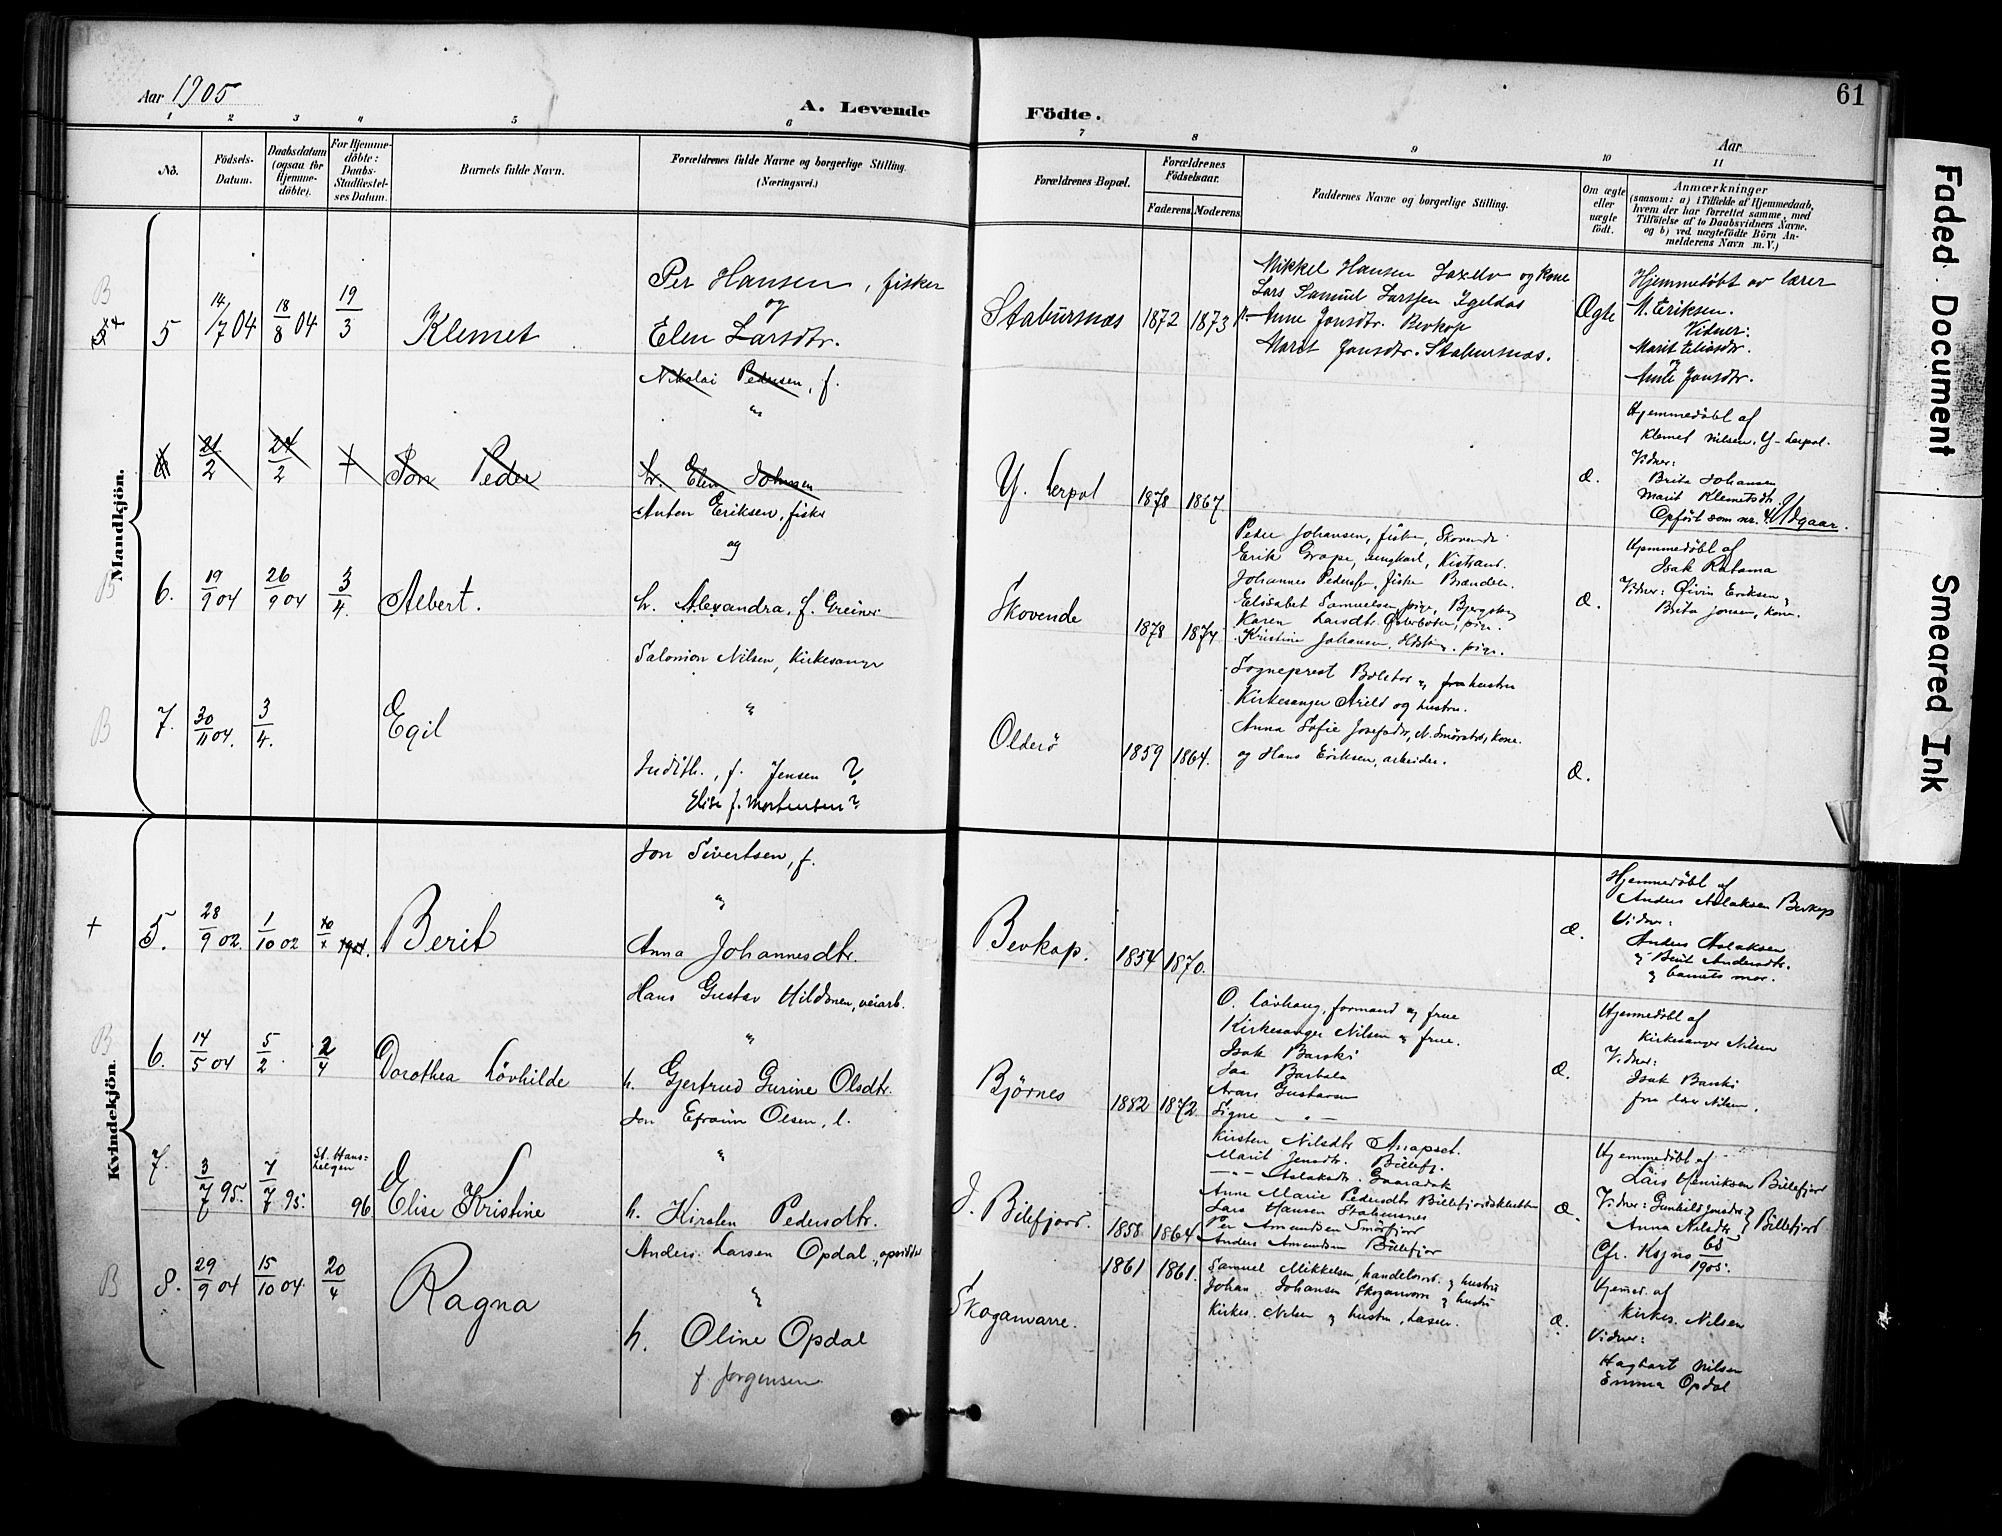 Aar 1905
A. Levende Födte.
61
Aar
1 2 3 4 5 6 7 8 9 10 11
No.
Födsels-Datum.
Daabsdatum (ogsaa for Hjemme-döbte).
For Hjemme-döbte: Daabs-Stadfæstel-ses Datum.
Barnets fulde Navn.
Forældrenes fulde Navne og borgerlige Stilling. (Næringsvei.)
Forældrenes Bopæl.
Forældrenes Födselsaar.
Faderens Moderens
Faddernes Navne og borgerlige Stilling.
Om ægte eller uægte født.
Anmærkninger
(saasom: a) i Tilfælde af Hjemmedaab,
hvem der har forrettet samme, med
Tilföielse af to Daabsvidners Navne.
og b) ved uægtefödte Börn An-
melderens Navn m. V.)
Mandkjön.
B
5 14/7 04 18/8 04 19/3 Klemet
Per Hansen, fisker
og
Elen Larsdtr.
Stabursnæs 1872 1873
Mikkel Hansen Laxelv og kone
Lars Samuel Larssen Igeldas
Anne Jonsdtr. Bevkop
Marit Jonsdtr. Stabursnæs.
Ægte
Hjemmedøbt av lærer
M. Eriksen.
Vidner:
Marit Eliasdtr.
og
Anne Jonsdtr.
6 21/2 24/2 + Jon Peder
Nikolai Pedersen, f.
"
h. Elen Johnsen
Y. Lerpol 1878 1867
Æ.
Hjemmedøbt af
Klemet Nilsen, Y-Lerpol.
Vidner:
Brita Johansen
Marit Klemetsdtr.
Opført som nr. 4. Udgaar.
B
6. 19/9 04 26/9 04 3/4. Albert.
Anton Eriksen, fisker
og
h. Alexandra, f. Greiner
Skovende 1878 1874
Peder Johansen, fisker, Skovende
Erik Grape, ungkarl, Kistrand.
Johannes Pedersen, fisker Brændelv.
Elisabet Samuelsen, pige, Bjergstad
Karen Larsdtr. Østerbotn, pige.
Kristine Johansen, pige.
Æ.
Hjemmedøbt af
Isak Ratama
Vidner: Øivin Eriksen &
Brita Jonsen, kone.
B
7. 30/11 04. 3/4. Egil
Salomon Nilsen, Kirkesanger
"
Judith, f. Jensen ?
Elise f. Mortensen?
Olderø 1859 1864.
Sogneprest Balstor og hustru
Kirkesanger Arild og hustru.
Anna Sofie Josefsdtr, N. Smørstad, kone.
og Hans Eriksen, arbeider.
Æ.
Kvindekjön.
+
5. 28/9 02. 1/10 02 Berit
Jon Sivertsen, f.
"
Anna Johannesdtr.
Bevkop. 1854 1870.
Æ.
Hjemmedøbt af
Anders Aslaksen Bevkop
Vidner:
Anders Aslaksen
og Berit Andersdtr.
og barnets mor.
B
6. 14/5 04 5/2. 2/4 Dorothea Lövhilde
Hans Gustav Hildonen, veiarb.
"
h. Gjertrud Gurine Olsdtr.
Bjørnes 1882 1872.
O. Lövhaug, formand og frue
Kirkesanger Nilsen og frue.
Isak Barski
Barbala
Gustavsen
Signe - " -
Æ.
Hjemmedøbt af
Kirkesanger Nilsen
Vidner:
Isak Barski
fru lærer Nilsen.
7. 3/7 95. 7/7 95. St. Hans-helgen 96 Elise Kristine
Jon Efraim Olsen, l.
"
h. Kirsten Pedersdtr.
I. Billefjord. 1858. 1864
Kirsten Nilsdtr
Marit Jensdtr. Billefj.
- " - Aslaksdtr.
Anne Marie Pedersdtr Billefjordsklubben
Lars Hansen Stabursnes
Per Amundsen Smörfjor
Anders Amundsen Billefjor
Æ.
Hjemmedøbt af
Lars Henriksen Billefjor
Vidner: Gunhild Jonsdtr &
Anna Nilsdtr } Billefjord
Cfr. Ksjno 65/1905.
B
8. 29/9 04 15/10 04. 20/4 Ragna
Anders Larsen Opdal, opsidder
"
h. Oline Opdal
f. Jørgensen
Skoganvarre. 1861 1861.
Samuel Mikkelsen, handelsmd. og hustru
Johan Johansen Skoganvarre og hustru
Kirkes. Nilsen og hustru, Laxelv.
Æ.
Hjemd. af
Kirkes. Nilsen
Vidner:
Hagbart Nilsen
Emma Opdal
Faded Document
Smeared Ink